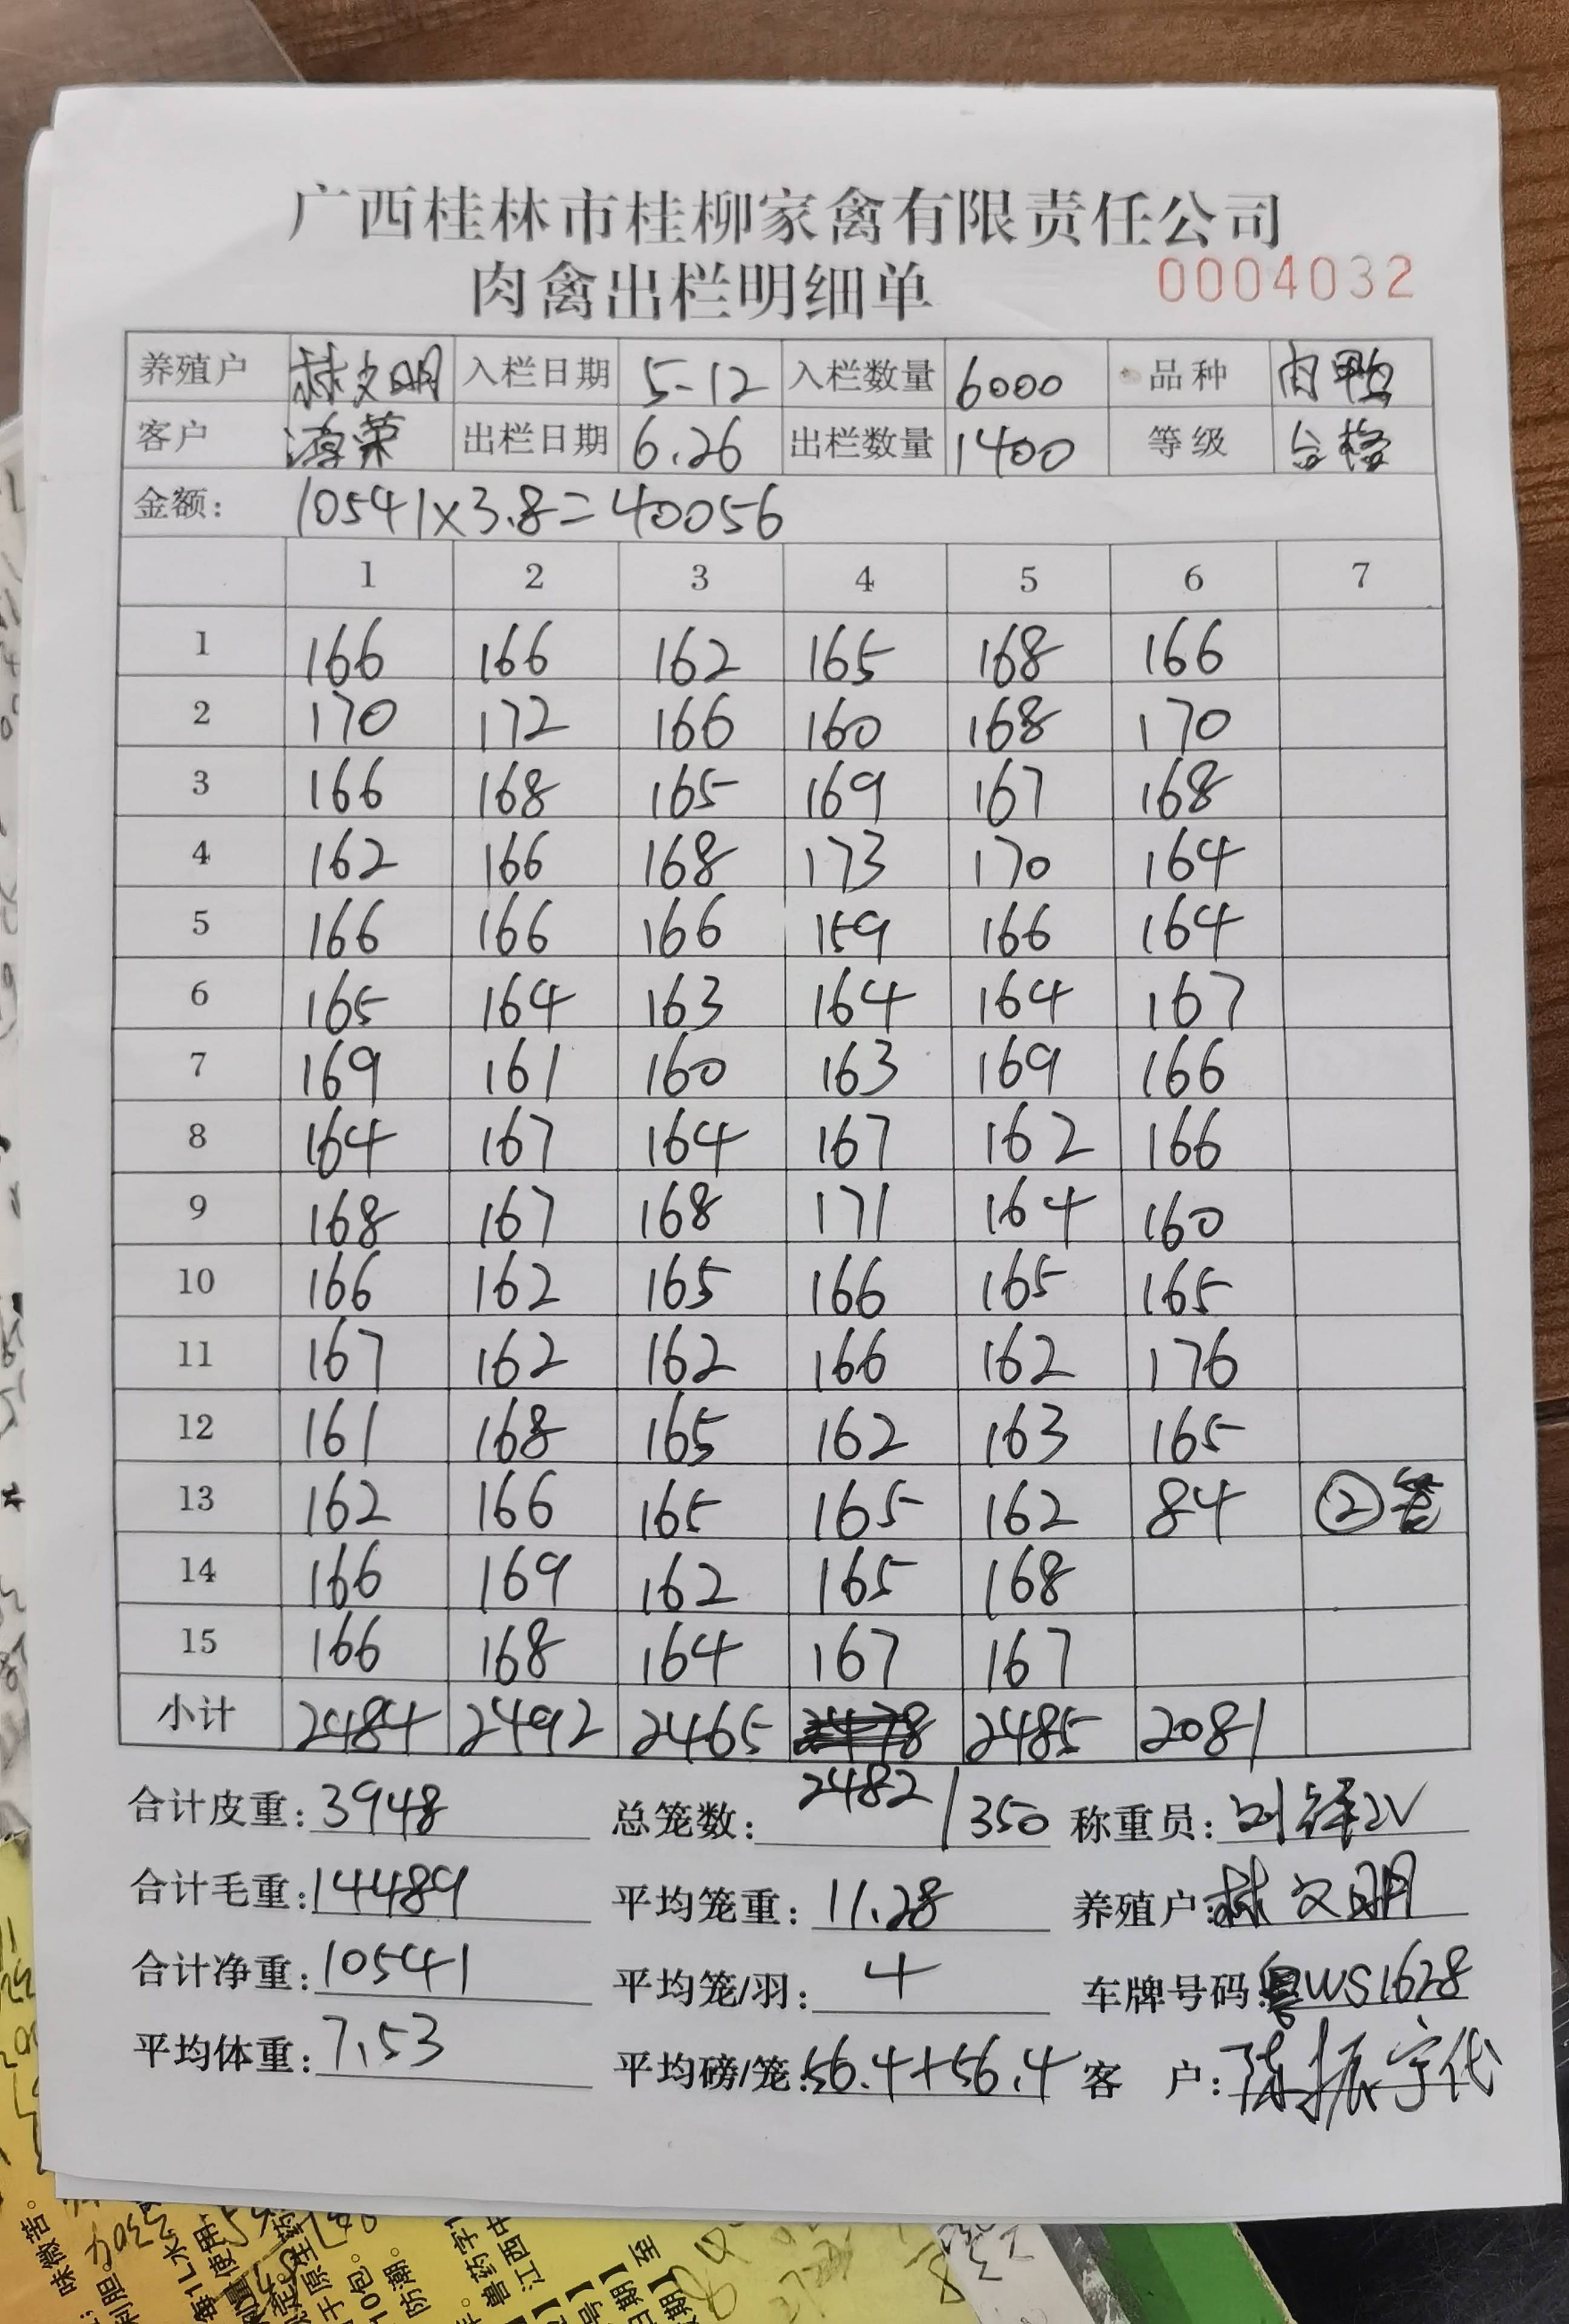 广西桂林市桂柳家禽有限责任公司
肉禽出栏明细单 0004032
养殖户 林文明 入栏日期 5-12 入栏数量 6000 品种 肉鸭
客户 鸿荣 出栏日期 6.26 出栏数量 1400 等级 合格
金额: 10541×3.8=40056
1 2 3 4 5 6 7
1 166 166 162 165 168 166
2 170 172 166 160 168 170
3 166 168 165 169 167 168
4 162 166 168 173 170 164
5 166 166 166 159 166 164
6 165 164 163 164 164 167
7 169 161 160 163 169 166
8 164 167 164 167 162 166
9 168 167 168 171 164 160
10 166 162 165 166 165 165
11 167 162 162 166 162 176
12 161 168 165 162 163 165
13 162 166 165 165 162 84 ②笼
14 166 169 162 165 168
15 166 168 164 167 167
小计 2484 2492 2465 2478 2485 2081
2482
合计皮重: 3948 总笼数: /350 称重员:
合计毛重: 14489 平均笼重: 11.28 养殖户: 林文明
合计净重: 10541 平均笼/羽: 4 车牌号码: 粤WS1628
平均体重: 7.53 平均磅/笼: 56.4+56.4 客 户: 陈振宇代
味微苦。
每1L水
10包。
防潮。